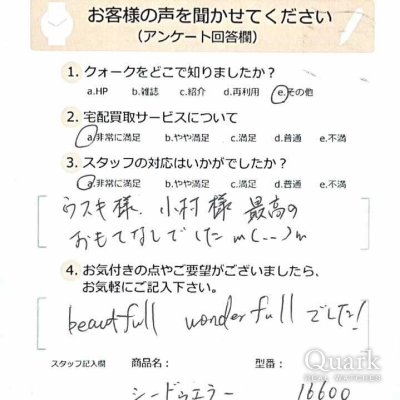 お客様の声を聞かせてください
(アンケート回答欄)
1. クォークをどこで知りましたか？
a.HP b.雑誌 c.紹介 d.再利用 e.その他
2. 宅配買取サービスについて
a.非常に満足 b.やや満足 c.満足 d.普通 e.不満
3. スタッフの対応はいかがでしたか？
a.非常に満足 b.やや満足 c.満足 d.普通 e.不満
ウスキ様、小村様 最高の
おもてなしでした m(__)m
4. お気付きの点やご要望がございましたら、
お気軽にご記入下さい。
beautfull wonderfull でした!
スタッフ記入欄 商品名： 型番：
シードゥエラー 16600
Quark
REAL WATCHES